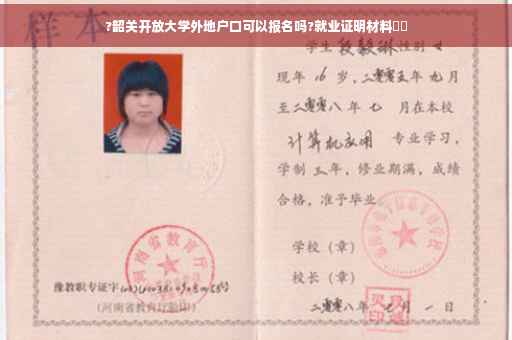 ?韶关开放大学外地户口可以报名吗?就业证明材料
样本
学生 段毅琳 性别 女
现年 16 岁，二零零五年 九月
至二零零八年 七 月在本校
计算机应用 专业学习，
学制 三年，修业期满，成绩
合格，准予毕业
学校（章）
校长（章）
河南省教育厅
豫教职专证字
（河南省教育厅验印）
二零零八年 七 月 一 日